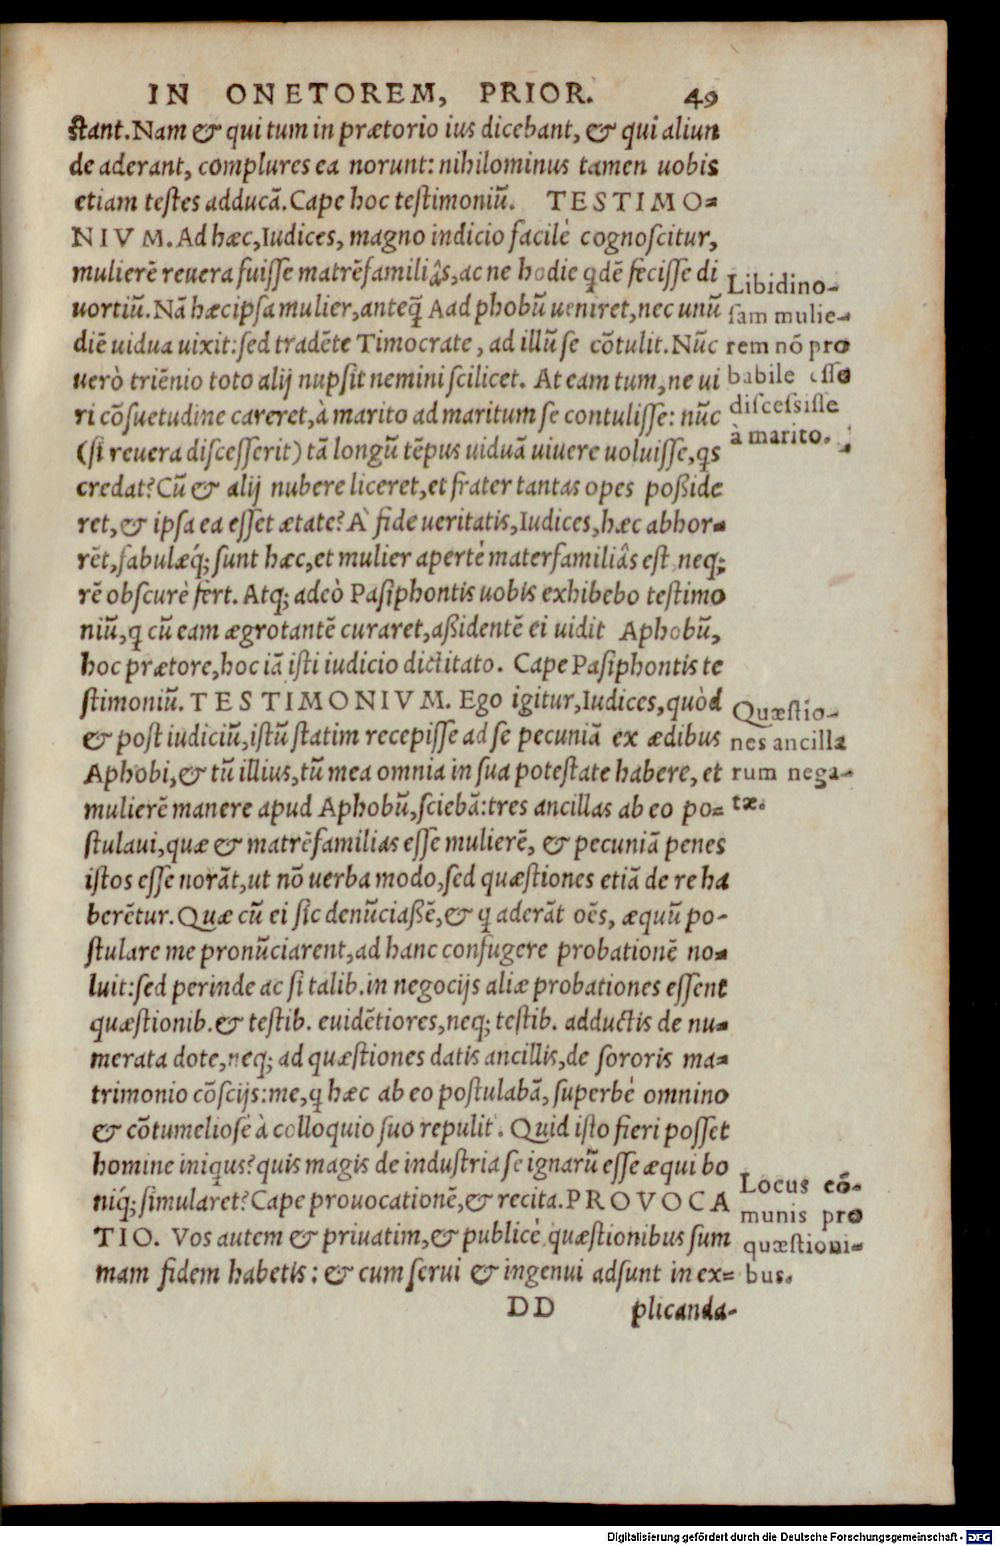 IN ONETOREM, PRIOR. 49
stant. Nam & qui tum in prætorio ius dicebant, & qui aliun
de aderant, complures ea norunt: nihilominus tamen uobis
etiam testes adducā. Cape hoc testimoniū. TESTIMO=
NIVM. Ad hæc, Iudices, magno indicio facilè cognoscitur,
mulierē reuera fuisse matrēfamiliâs, ac ne hodie qdē fecisse di
uortiū. Nā hæc ipsa mulier, anteq̃ Aad phobū ueniret, nec unū
diē uidua uixit: sed tradēte Timocrate, ad illū se cōtulit. Nūc
uerò triēnio toto alij nupsit nemini scilicet. At eam tum, ne ui
ri cōsuetudine careret, à marito ad maritum se contulisse: nūc
(si reuera discesserit) tā longū tēpus uiduā uiuere uoluisse, qs
credat? Cū & alij nubere liceret, et frater tantas opes posside
ret, & ipsa ea esset ætate? A fide ueritatis, Iudices, hæc abhor=
rēt, fabulæq́; sunt hæc, et mulier apertè materfamiliâs est neq;
rē obscurè fert. Atq; adeò Pasiphontis uobis exhibebo testimo
niū, q cū eam ægrotantē curaret, assidentē ei uidit Aphobū,
hoc prætore, hoc iā isti iudicio dictitato. Cape Pasiphontis te
stimoniū. TESTIMONIVM. Ego igitur, Iudices, quòd
& post iudiciū, istū statim recepisse ad se pecuniā ex ædibus
Aphobi, & tū illius, tū mea omnia in sua potestate habere, et
mulierē manere apud Aphobū, sciebā: tres ancillas ab eo po=
stulaui, quæ & matrēfamilias esse mulierē, & pecuniā penes
istos esse norāt, ut nō uerba modo, sed quæstiones etiā de re ha
berētur. Quæ cū ei sic denūciassē, & q aderāt oēs, æquū po-
stulare me pronūciarent, ad hanc confugere probationē no=
luit: sed perinde ac si talib. in negocijs aliæ probationes essent
quæstionib. & testib. euidētiores, neq; testib. adductis de nu=
merata dote, neq; ad quæstiones datis ancillis, de sororis ma=
trimonio cōscijs: me, q hæc ab eo postulabā, superbè omnino
& cōtumeliosè à colloquio suo repulit. Quid isto fieri posset
homine iniqus? quis magis de industria se ignarū esse æqui bo
niq́; simularet? Cape prouocationē, & recita. PROVOCA
TIO. Vos autem & priuatim, & publicè quæstionibus sum
mam fidem habetis: & cum serui & ingenui adsunt in ex=
DD plicanda-
Libidino-
sam mulie-
rem nō pro
babile esse
discessisse
à marito.
Quæstio-
nes ancilla
rum nega-
tæ.
Locus cō-
munis pro
quæstioni=
bus.
Digitalisierung gefördert durch die Deutsche Forschungsgemeinschaft - DFG